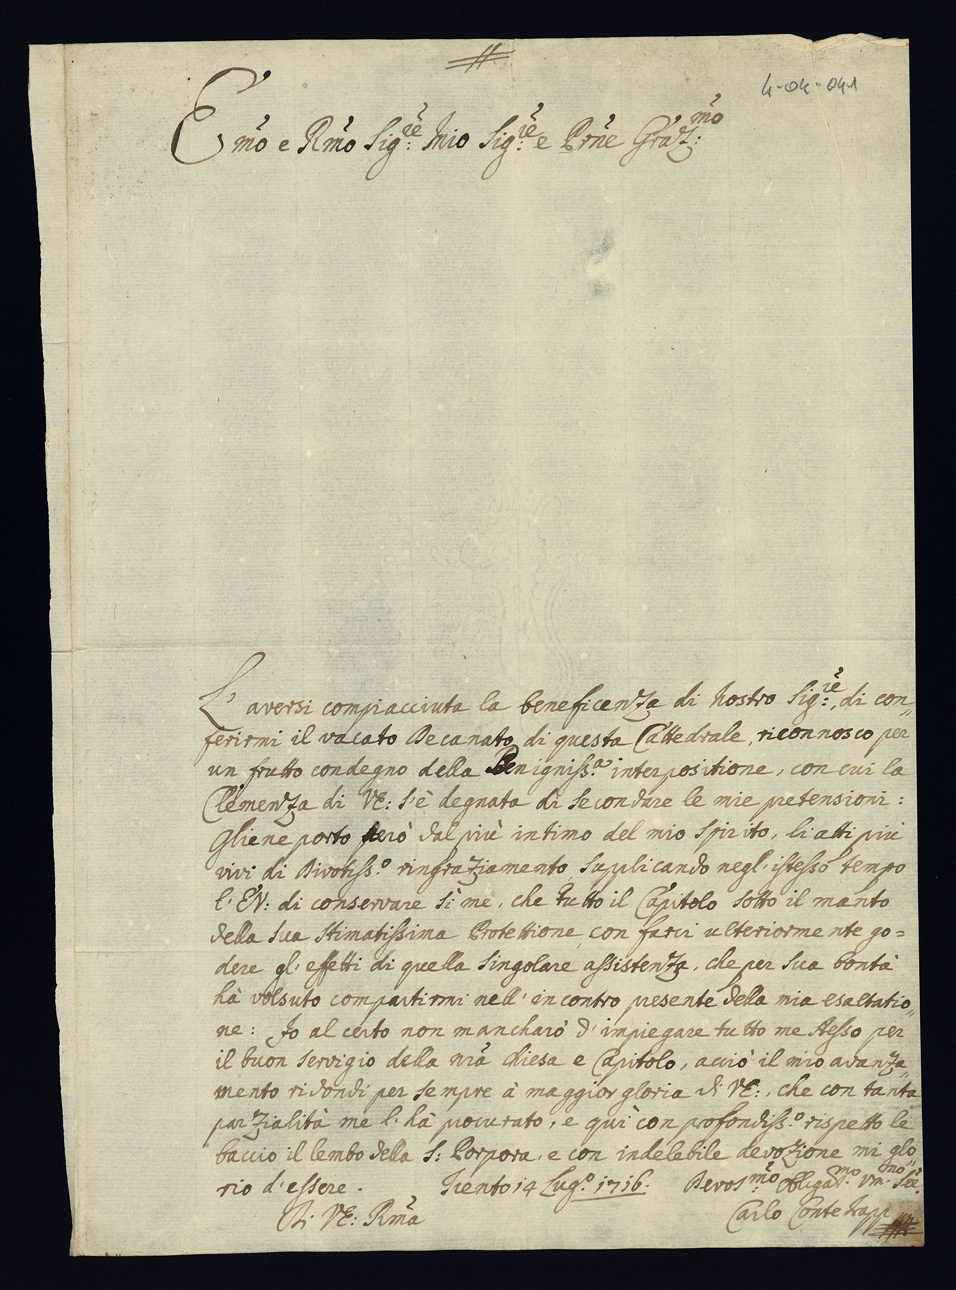 4-04-041
Emo e Rmo Sig:re Mio Sig:re e Prne Graz:mo
L' aversi compiacciuta la beneficenza di Nostro Sig:re, di con„
ferirmi il vacato Decanato di questa Cattedrale, riconnosco per
un frutto condegno della Benigniss:a interpositione, con cui la
Clemenza di VE: s'è degnata di secondare le mie pretensioni:
Gliene porto però dal più intimo del mio spirito, li atti più
vivi di Divotiss:o ringraziamento, supplicando negl' istesso tempo
l' EV: di conservare sì me, che tutto il Capitolo sotto il manto
della Sua stimatissima Protettione, con farci ulteriormente go=
dere gl' effetti di quella singolare assistenza, che per sua bontà
hà volsuto compartirmi nell' incontro presente della mia esaltatio„
ne: Io al certo non mancharò d' impiegare tutto me stesso per
il buon servigio della nra Chiesa e Capitolo, acciò il mio avanza„
mento ridondi per sempre à maggior gloria di VE:, che con tanta
parzialità me l' hà procurato, e quì con profondiss:o rispetto le
baccio il lembo della S: Porpora, e con indelebile devozione mi glo
rio d' essere. Trento 14 Lug:o 1716. Devos:mo Obliga:mo
Di VE: Rma Carlo Conte Trapp